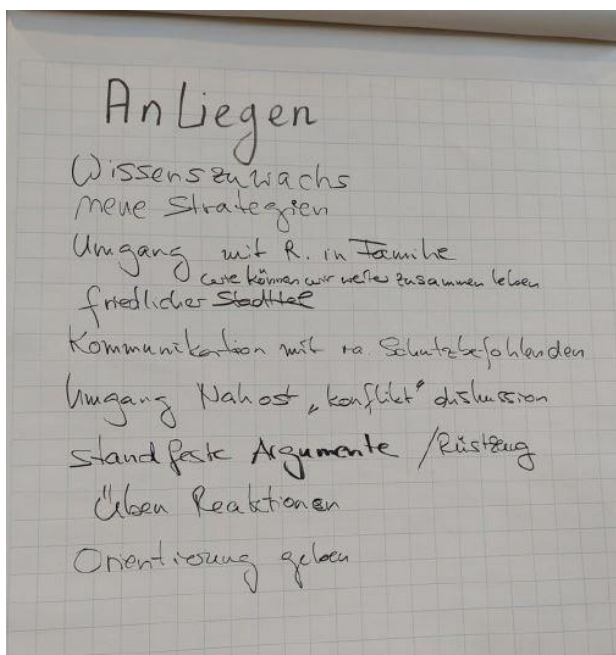 AnLiegen
Wissenszuwachs
neue Strategien
Umgang mit R. in Familie
wie können wir weiter zusammen leben
friedlicher Stadtteil
Kommunikation mit ra. Schutzbefohlenden
Umgang Nahost „konflikt“ diskussion
standfeste Argumente / Rüstzeug
Üben Reaktionen
Orientierung geben